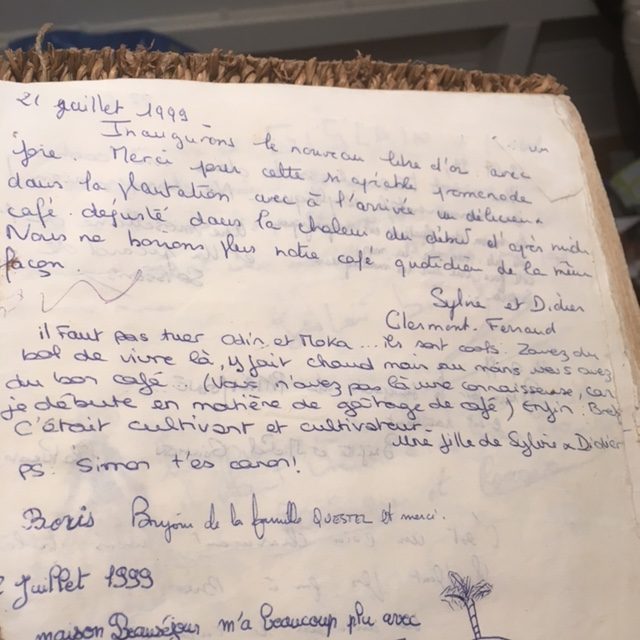 21 juillet 1999
Inaugurons le nouveau livre d'or avec un
joie. Merci pour cette si agréable promenade
dans la plantation avec à l'arrivée un délicieux
café dégusté dans la chaleur du début d'après midi
Nous ne boirons plus notre café quotidien de la même
façon.
Sylvie et Didier
Clermont. Ferrand
il faut pas tuer Odin et Moka... ils sont cools. Zavez du
bol de vivre là, y fait chaud mais au moins vous avez
du bon café (Vous n'avez pas là une connaisseuse, car
je débute en matière de goûtage de café) Enfin. Bref
C'était cultivant et cultivateur.
une fille de Sylvie x Didier
ps: Simon t'es canon!
Boris Bnjour de la famille QUESTEL et merci.
Juillet 1999
maison Beauséjour m'a beaucoup plu avec